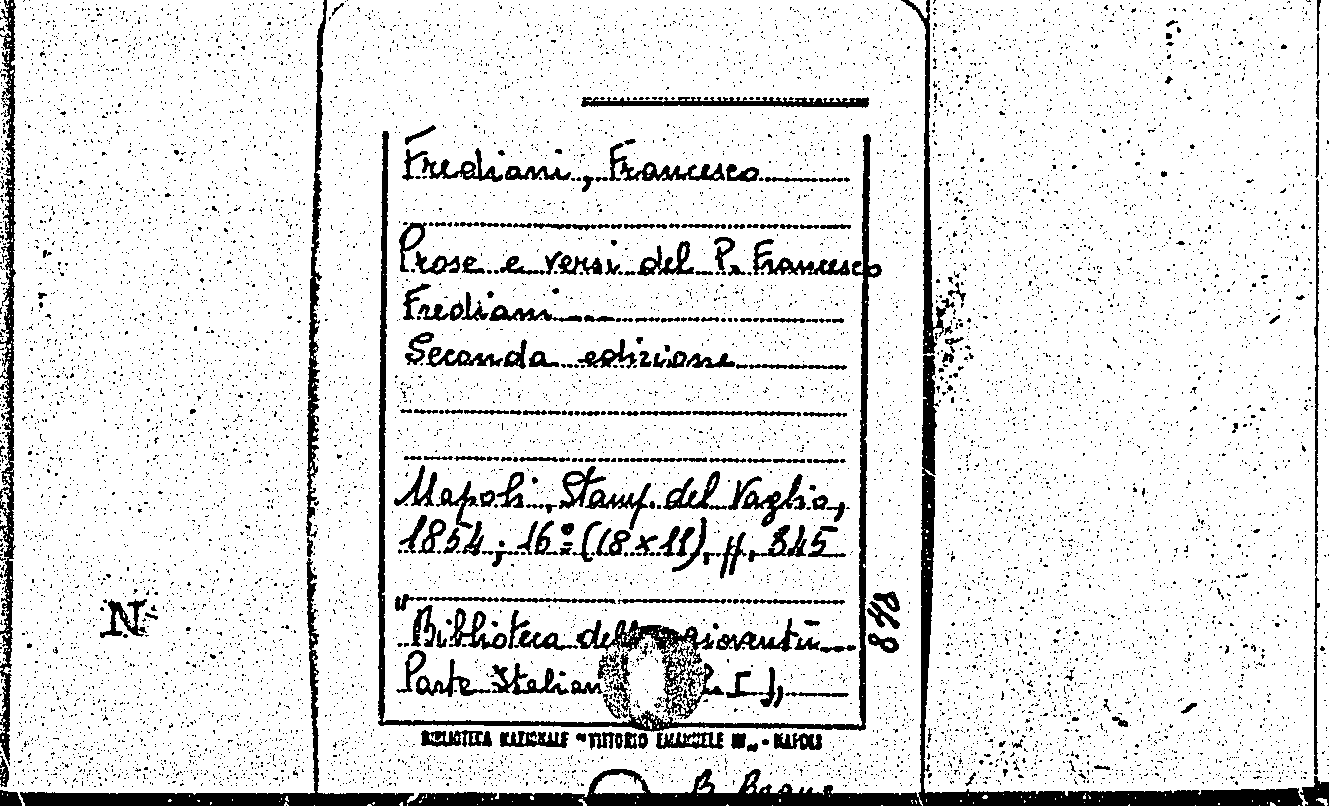 Frediani, Francesco
Prose e versi del P. Francesco
Frediani ...
Seconda edizione
Napoli, Stamp. del Vaglio,
1854; 16º (18x11), pp. 345
"Biblioteca della gioventù...
Parte Italian I),
848
N
BIBLIOTECA NAZIONALE "VITTORIO EMANUELE III" - NAPOLI
B.